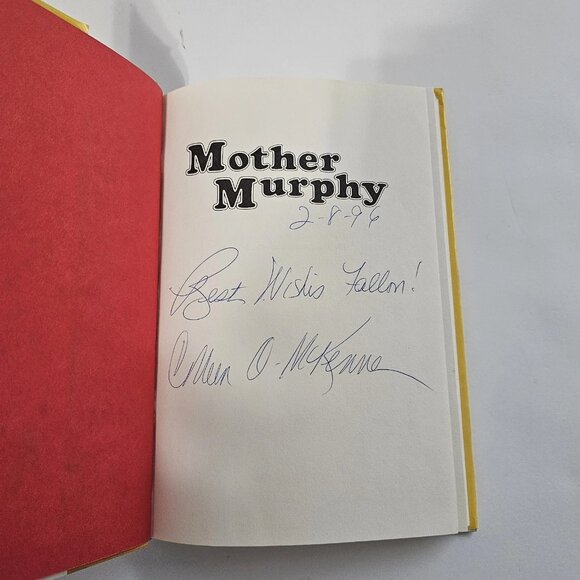 Mother
Murphy
2-8-96
Best Wishes Fallon!
Colleen O-McKenna